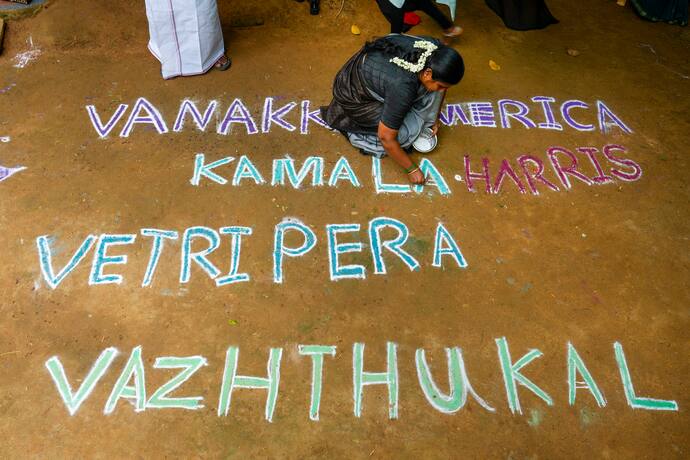 VANAKK MERICA
KAMALA HARRIS
VETRI PERA
VAZHTHUKAL